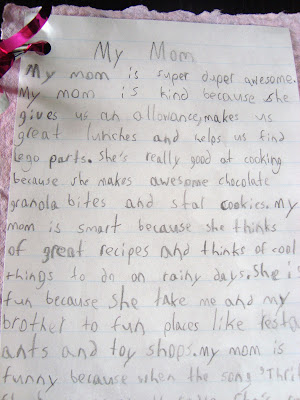 My Mom
My mom is super duper awesome.
My mom is kind because she
gives us an allowance, makes us
great lunches and helps us find
Lego parts. She's really good at cooking
because she makes awesome chocolate
granola bites and stal cookies. My
mom is smart because she thinks
of great recipes and thinks of cool
things to do on rainy days. She i
fun because she take me and my
brother to fun places like resta
ants and toy shops. My mom is
funny because when the song 'Thril